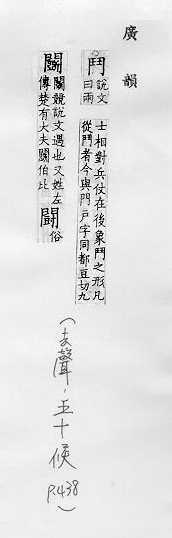 廣韻
○鬥說文曰兩士相對兵仗在後象鬥之形凡從鬥者今與門戶字同都豆切九
鬭鬭競說文遇也又姓左傳楚有大夫鬭伯比鬪俗
(去聲,五十候 P.438)